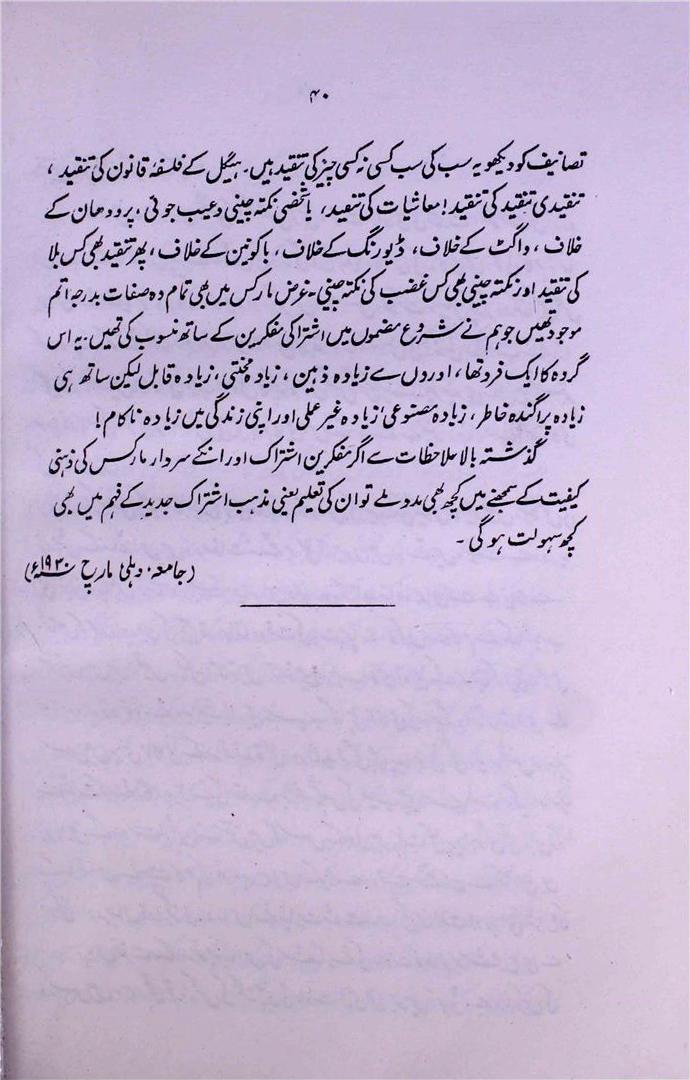 ۴۰
تصانیف کو دیکھو یہ سب کی سب کسی نہ کسی چیز کی تنقید ہیں۔ ہیگل کے فلسفۂ قانون کی تنقید،
تنقیدی تنقید کی تنقید! معاشیات کی تنقید، یا شخصی نکتہ چینی و عیب جوئی، پرودھان کے
خلاف، واگٹ کے خلاف، ڈیورنگ کے خلاف، باکونین کے خلاف، پھر تنقید بھی کس بلا
کی تنقید اور نکتہ چینی بھی کس غضب کی نکتہ چینی۔ غرض مارکس میں بھی تمام وہ صفات بدرجہ اتم
موجود تھیں جو ہم نے شروع مضموں میں اشتراکی مفکرین کے ساتھ منسوب کی تھیں۔ یہ اس
گروہ کا ایک فرد تھا، اوروں سے زیادہ ذہین، زیادہ محنتی، زیادہ قابل لیکن ساتھ ہی
زیادہ پراگندہ خاطر، زیادہ مصنوعی، زیادہ غیر علمی اور اپنی زندگی میں زیادہ ناکام!
گذشتہ بالا ملاحظات سے اگر مفکرین اشتراک اور انکے سردار مارکس کی ذہنی
کیفیت کے سمجھنے میں کچھ بھی مدد ملے تو ان کی تعلیم یعنی مذہب اشتراک جدید کے فہم میں بھی
کچھ سہولت ہو گی۔
(جامعہ، دہلی مارچ ۱۹۲۰ء)